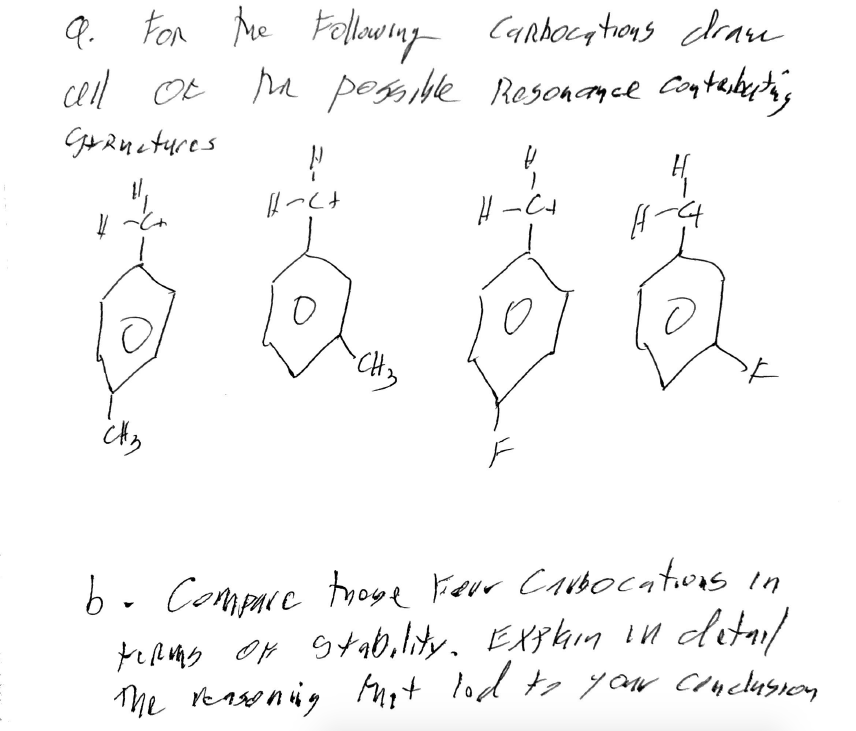 a. For the Following Carbocations draw
all of the possible Resonance Contributing
Structures
H H H H
H - C+ H - C+ H - C+ H - C+
CH3 F
CH3 F
b. Compare those Four Carbocations in
terms of stability. Explain in detail
The reasoning that led to your conclusion